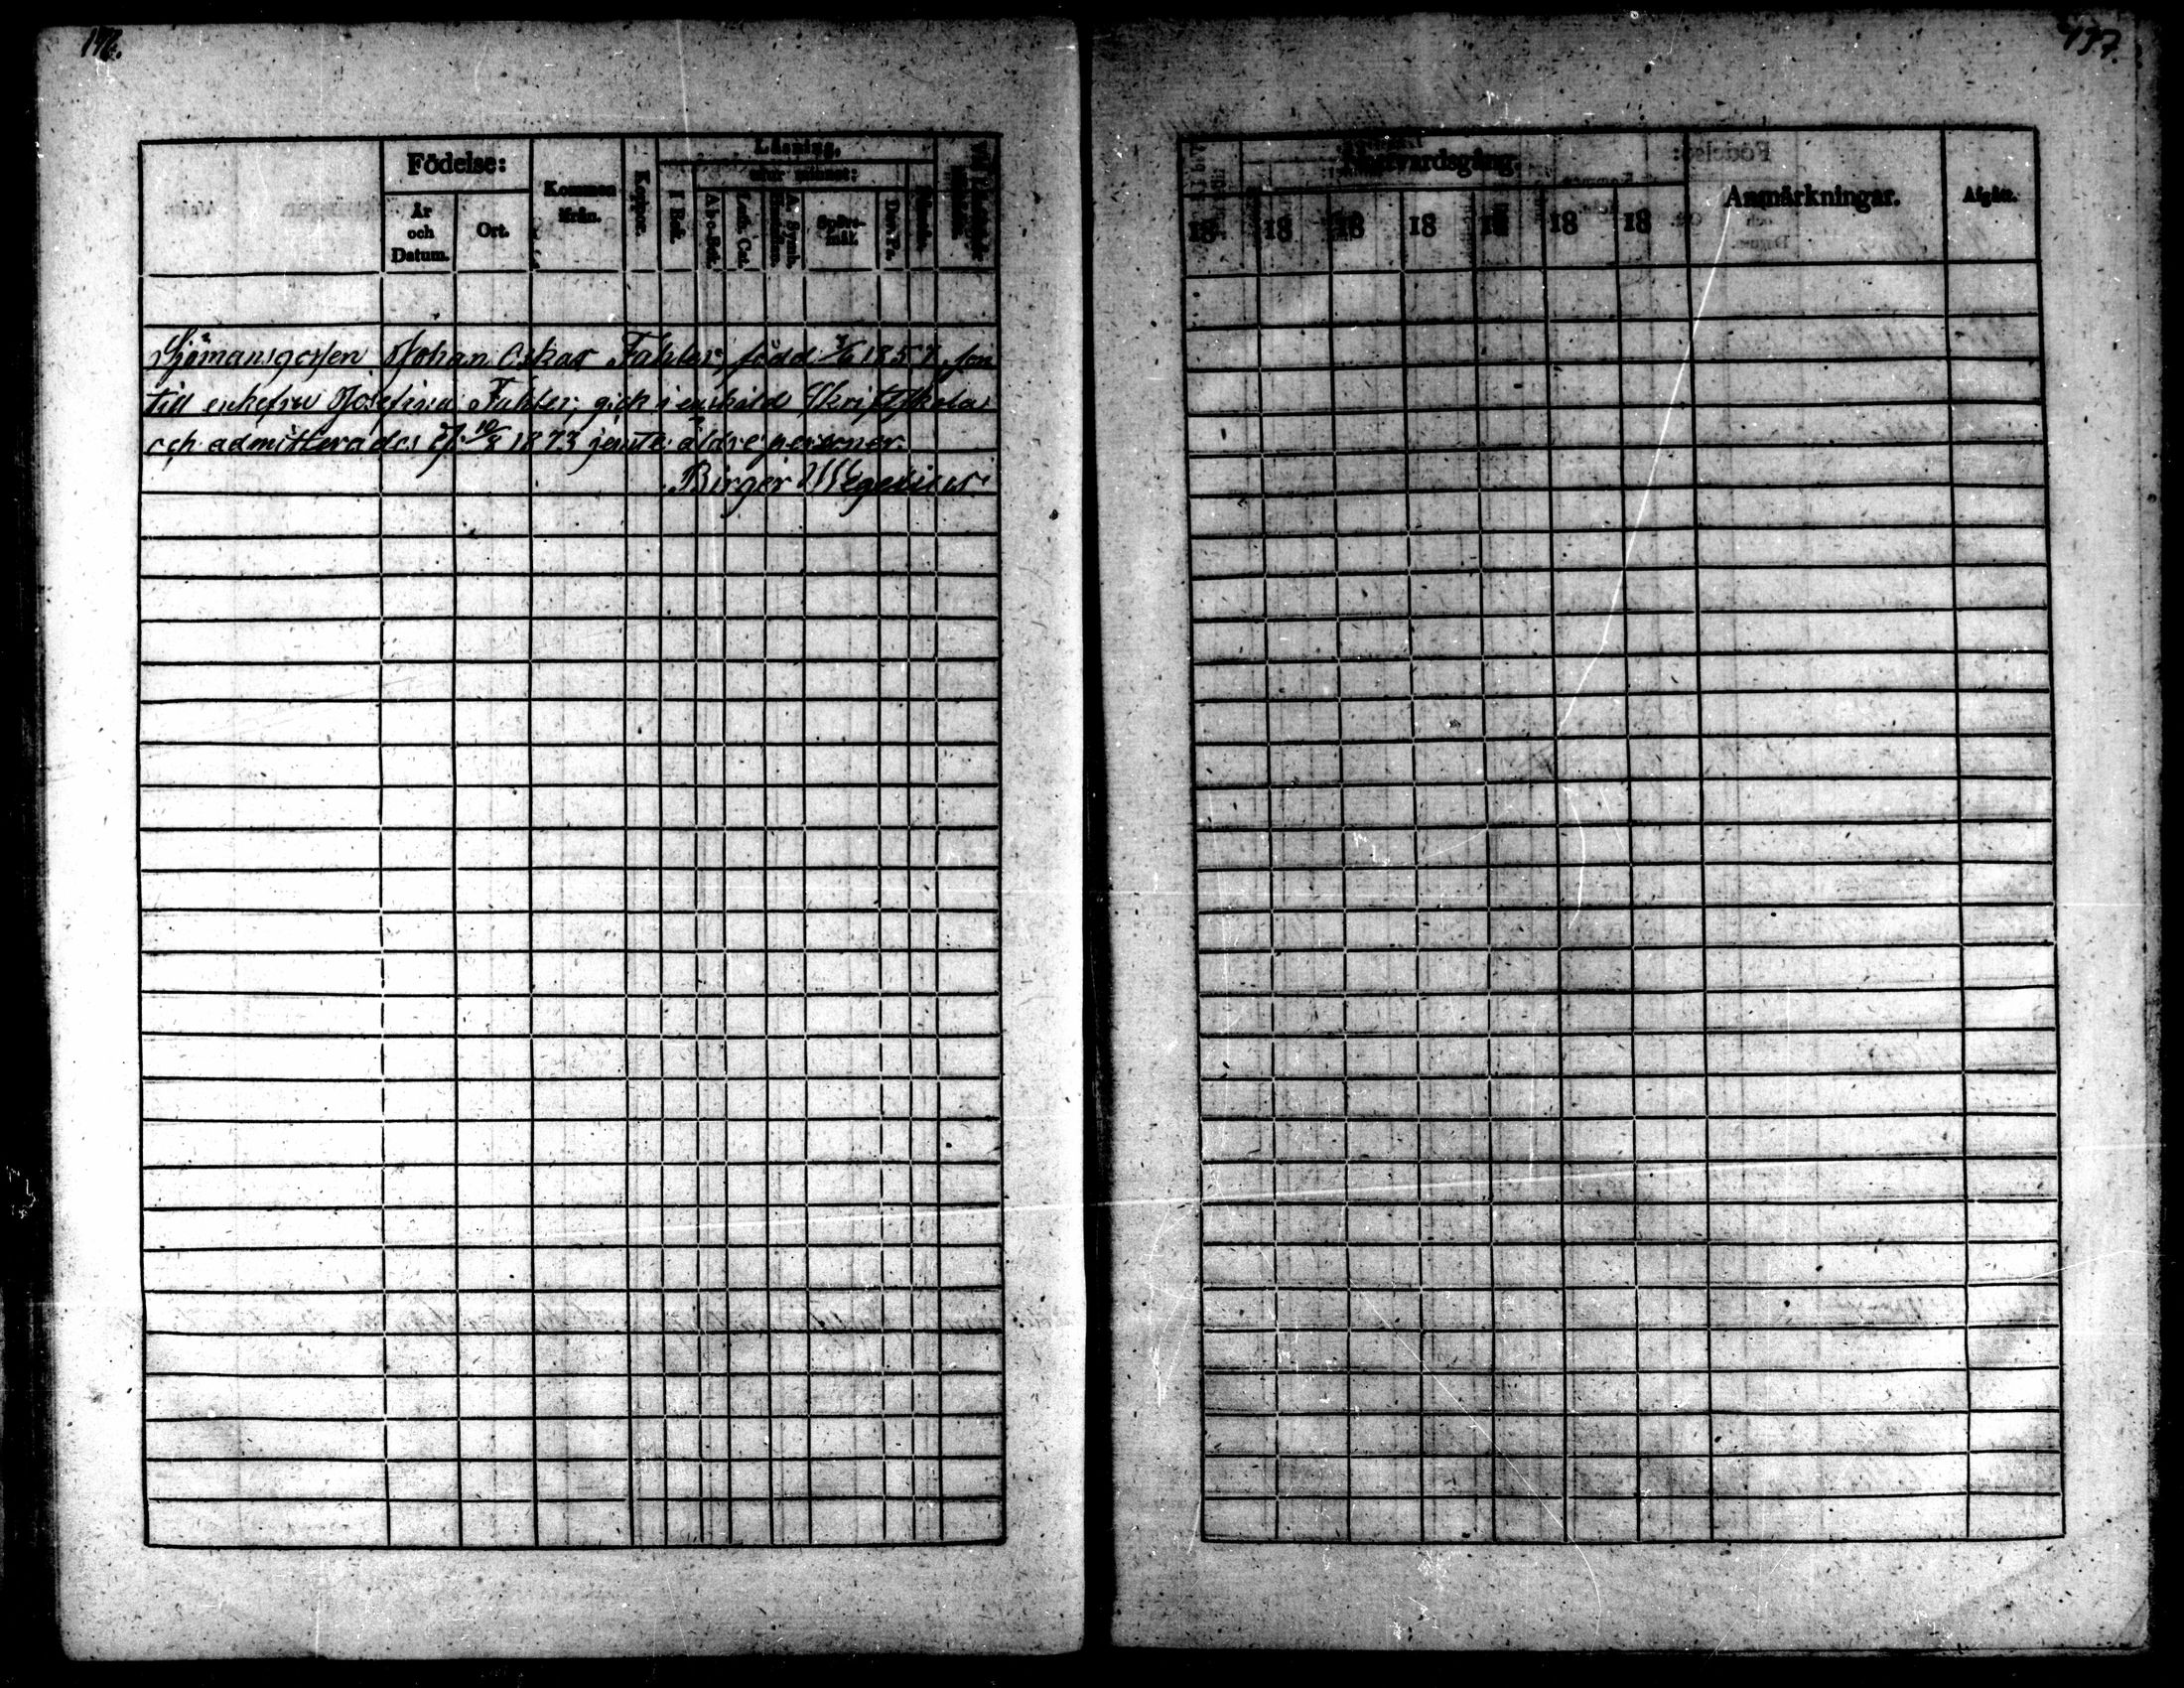 176.
177.
Födelse:
År och Datum.
Ort.
Kommen ifrån.
Koppor.
Läsning,
I Bok.
Abc-Bok.
Luth. Cat.
Spörs-mål.
Sjömansgossen Johan Oskar Fahler, född 3/6 1857, son
till enkefru Josefina Fahler, gick i enskild Skriftskola
och admitterades d. 10/8 1873 jemte äldre personer.
Birger Wegelius
Nattvardsgång.
18 18 18 18 18 18 18
Anmärkningar.
Afgått.